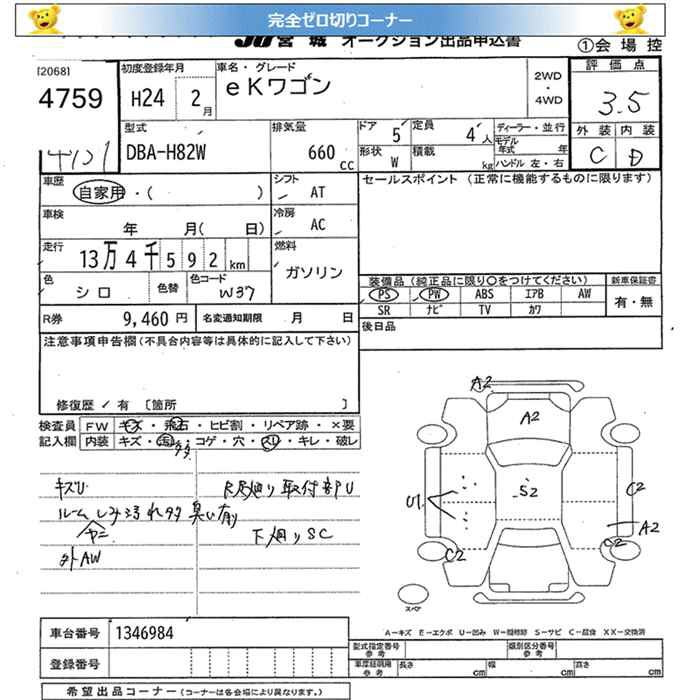 完全ゼロ切りコーナー
JU宮城 オークション出品申込書
①会場控
[2068]
4759
初度登録年月
H24 2月
車名・グレード
eKワゴン
2WD
・
4WD
評価点
3.5
外装 内装
C D
型式
DBA-H82W
排気量
660 cc
ドア 5
定員 4人
形状 W
積載 kg
ディーラー・並行
モデル年式 年
ハンドル 左・右
車歴
自家用・( )
シフト
AT
セールスポイント (正常に機能するものに限ります)
車検
年 月( 日)
冷房
AC
走行
13万4千592km
燃料
ガソリン
色
シロ
色替
色コード
W37
装備品(純正品に限り○をつけてください)
新車保証書
PS PW ABS エアB AW
有・無
SR ナビ TV カワ
R券 9,460円
名変通知期限 月 日
後日品
注意事項申告欄(不具合内容等は具体的に記入して下さい)
修復歴 / 有 〔箇所 〕
検査員
記入欄
FW キズ・飛石・ヒビ割・リペア跡・×要
内装 キズ・・コゲ・穴・スレ・キレ・破レ
キズU
ルーム しみ汚れタタ 臭い有
ヤニ
外AW
取付部U
下廻りSC
A2
A2
S2
U1
C2
A2
C2
C2
スペア
A-キズ E-エクボ U-凹み W-補修跡 S-サビ C-腐食 XX-交換済
車台番号 1346984
登録番号
型式指定番号
参考
類別区分番号
参考
車庫証明用
参考
長さ cm 幅 cm 高さ cm
希望出品コーナー(コーナーは各会場により異なります。)